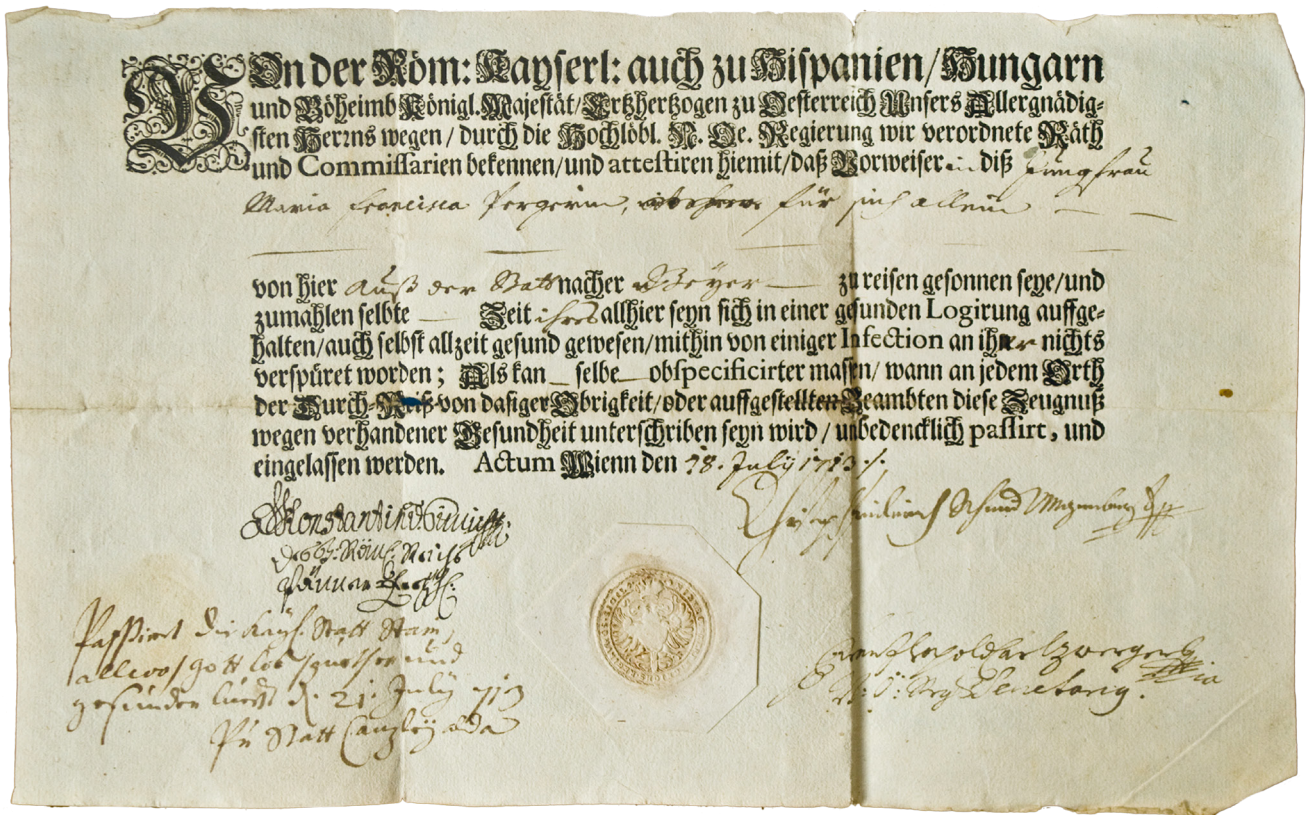 VOn der Röm: Kayserl: auch zu Hispanien/Hungarn
und Böheimb Königl. Majestät/Ertzhertzogen zu Oesterreich Unsers Allergnädig-
sten Herrns wegen/durch die Hochlöbl. N. Oe. Regierung wir verordnete Räth
und Commissarien bekennen/und attestiren hiemit/daß Vorweiserin diß Jungfrau
Maria Francisca Pergerin, für sich allein
von hier Auß der Statt nacher Steyer zu reisen gesonnen seye/und
zumahlen selbte Zeit ihres allhier seyn sich in einer gesunden Logirung auffge-
halten/auch selbst allzeit gesund gewesen/mithin von einiger Infection an ihr nichts
verspüret worden; Als kan selbe obspecificirter massen/wann an jedem Orth
der Durch-Reiß von dasiger Obrigkeit/oder auffgestellten Beambten diese Zeugnuß
wegen verhandener Gesundheit unterschriben seyn wird/unbedencklich passirt, und
eingelassen werden. Actum Wienn den 18. July 1713
Röm. Reichs
Passiert die Kay. Statt Stain,
allwo Gott lob und
gesunder Lufft d. 21. July 713
Statt Canzley alda